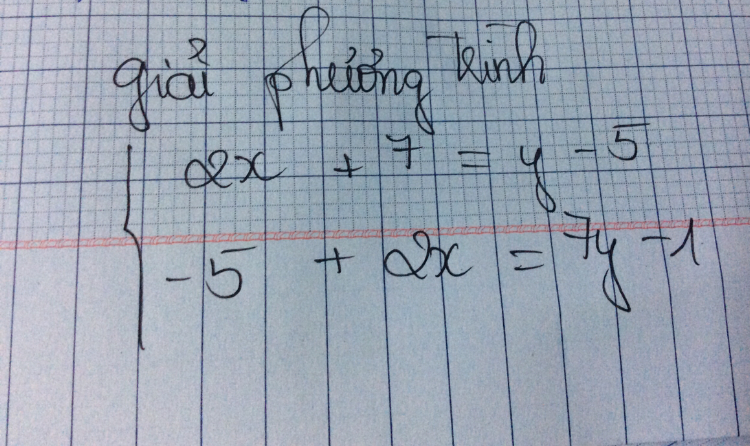 giải phương trình
2x + 7 = y - 5
-5 + 2x = 7y - 1